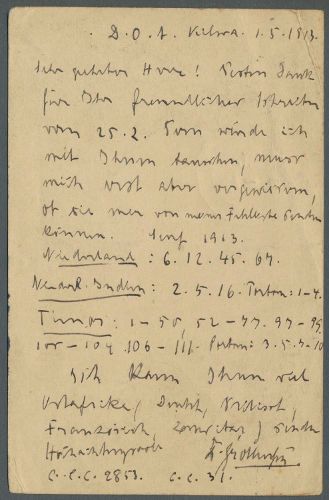 D.O.A. Kilwa. 1.5.1913.
Sehr geehrter Herr! Besten Dank
für Ihr freundliches Schreiben
vom 25.2. Gern würde ich
mit Ihnen tauschen, muss
mich erst aber vergewissern,
ob Sie mir von meiner Fehlliste senden
können. Senf 1913.
Niederland: 6. 12. 45. 64.
Niederl. Indien: 2. 5. 16. Porton: 1-4.
Timor: 1-50, 52-77. 97-99,
100-104. 106-111. Porton: 3. 5. 7-10
Ich kann Ihnen viel
Ostafrika, Deutsch, Britisch,
Französisch, senden
Hochachtungsvoll
C.C.C. 2853. C.C. 31.